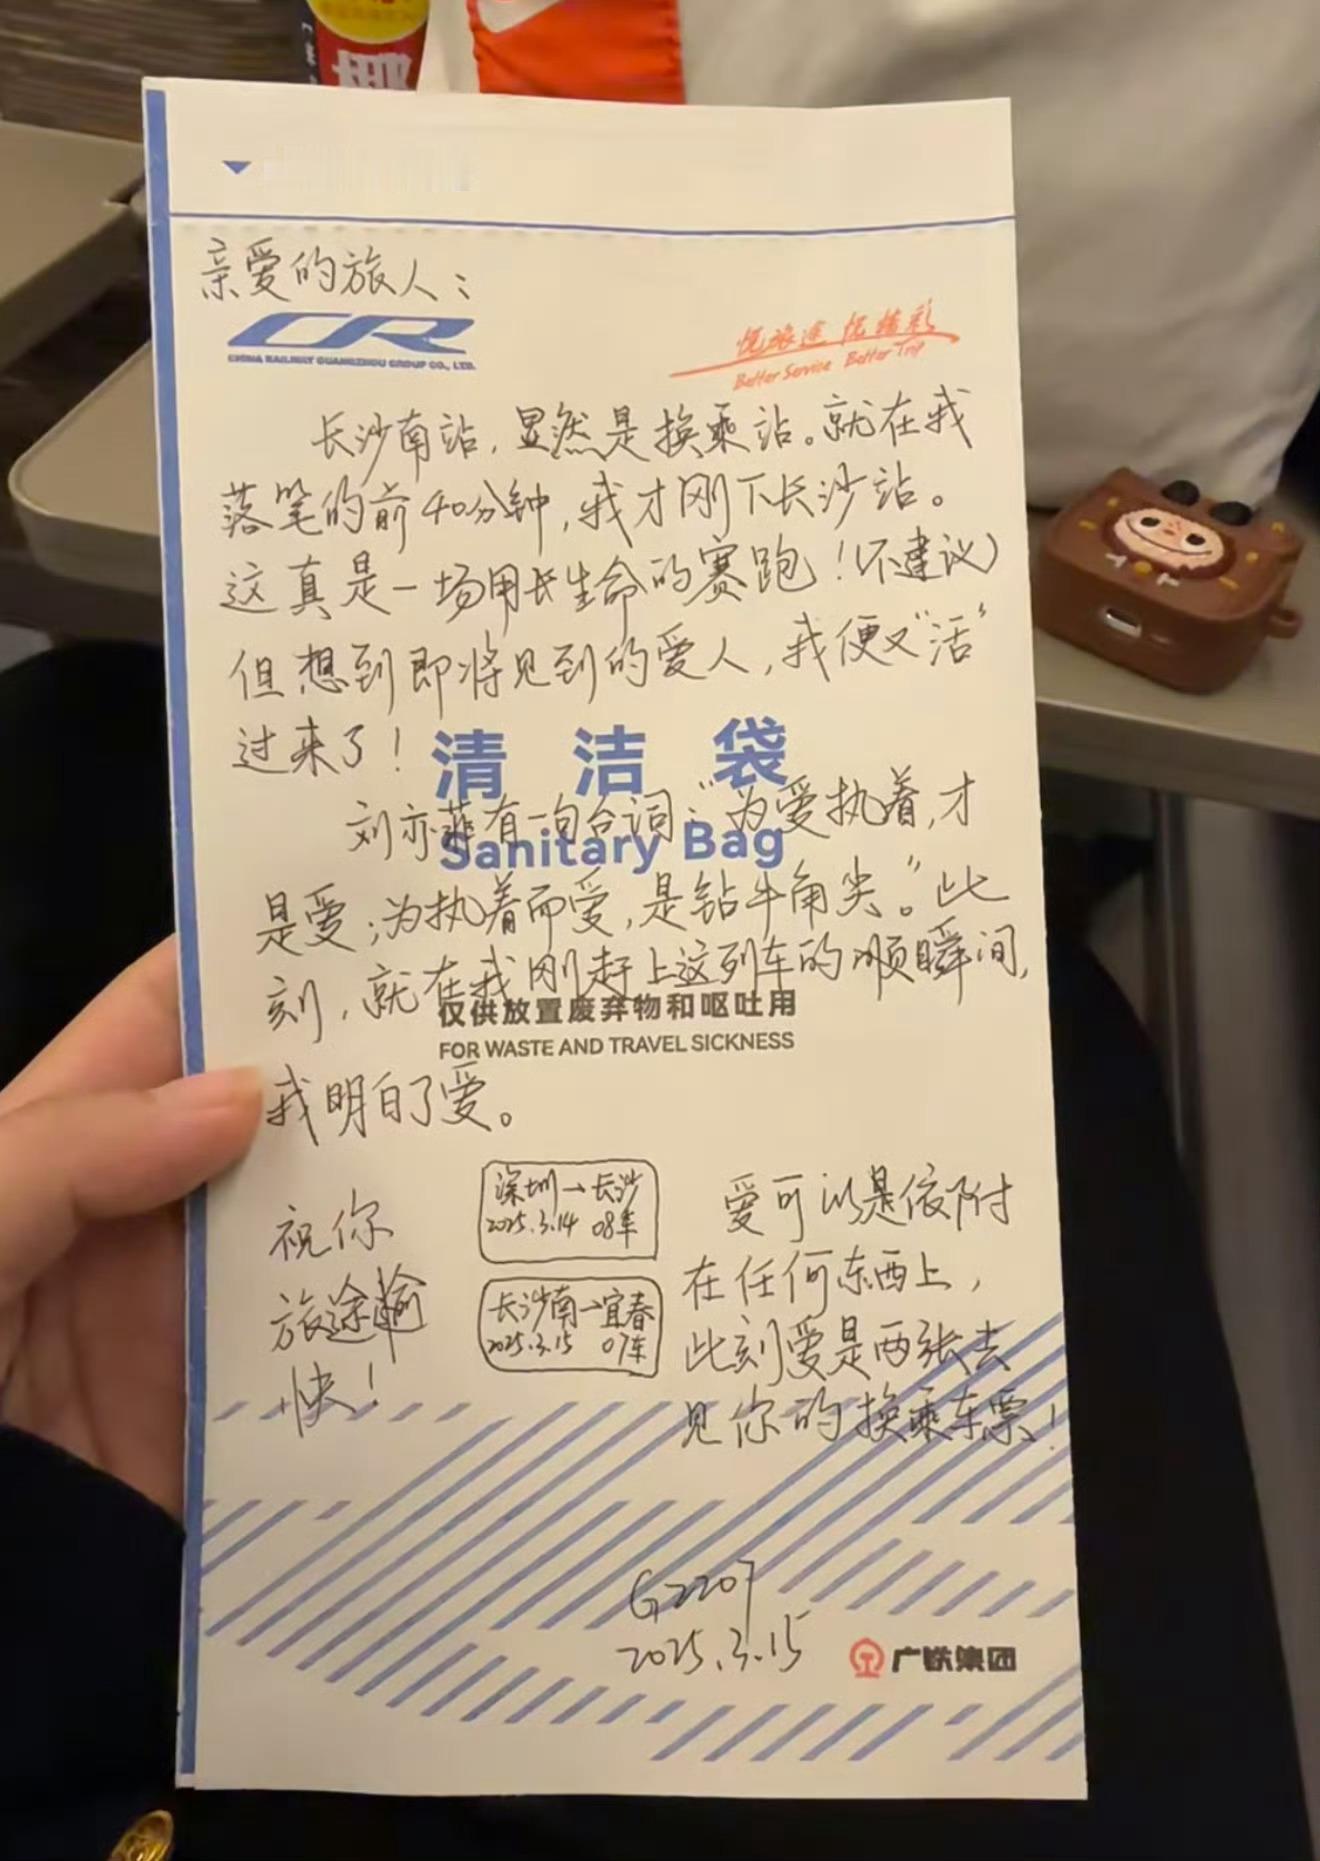 椰
亲爱的旅人：
CR
CHINA RAILWAY GUANGZHOU GROUP CO., LTD.
悦旅途 悦精彩
Better Service Better Trip
长沙南站，显然是换乘站。就在我
落笔的前40分钟，我才刚下长沙站。
这真是一场用长生命的赛跑！（不建议）
但想到即将见到的爱人，我便又“活”
过来了！
清洁袋
Sanitary Bag
刘亦菲有一句台词：“为爱执着，才
是爱；为执着而爱，是钻牛角尖。”此
刻，就在我刚赶上这列车的顺瞬间，
仅供放置废弃物和呕吐用
FOR WASTE AND TRAVEL SICKNESS
我明白了爱。
祝你
旅途愉
快！
深圳→长沙
2025.3.14 08车
长沙南→宜春
2025.3.15 07车
爱可以是依附
在任何东西上，
此刻爱是两张去
见你的换乘车票！
G2207
2025.3.15
广铁集团